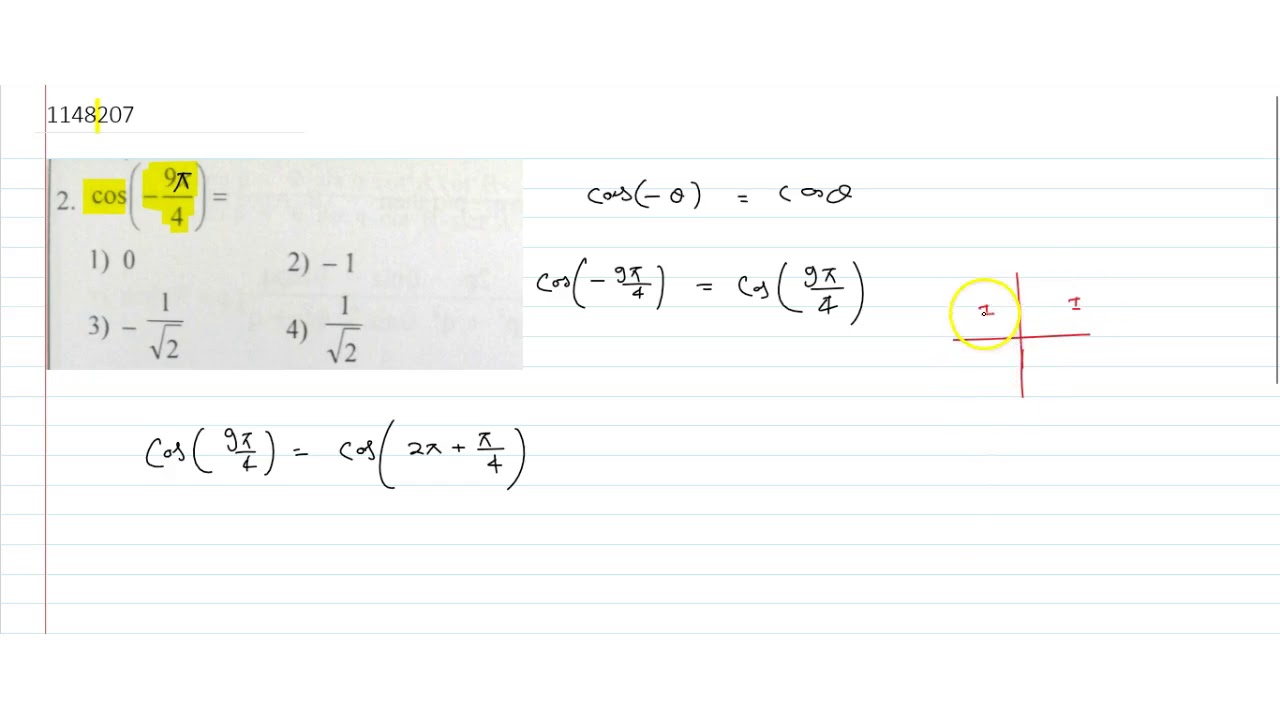 1148207
2. cos(-9π/4) =
1) 0 2) -1
3) -1/√2 4) 1/√2
cos(-θ) = cosθ
cos(-9π/4) = cos(9π/4)
I I
cos(9π/4) = cos(2π + π/4)